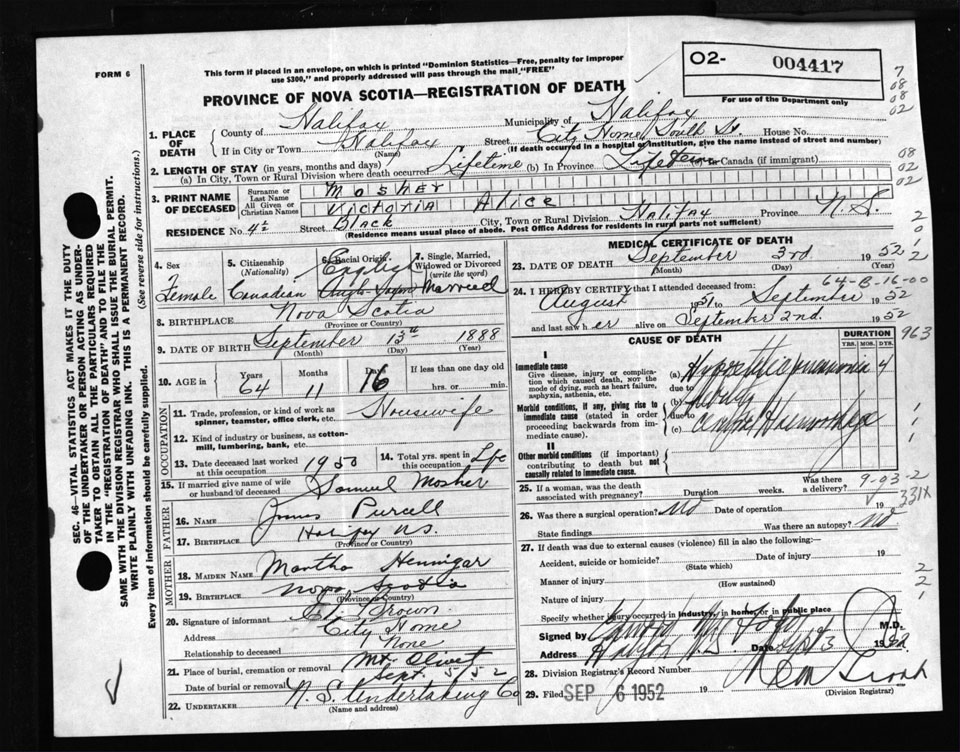 FORM 6
This form if placed in an envelope, on which is printed "Dominion Statistics—Free, penalty for improper
use $300," and properly addressed will pass through the mail "FREE"
PROVINCE OF NOVA SCOTIA—REGISTRATION OF DEATH
O2- 004417
For use of the Department only
7
08
08
02
1. PLACE OF DEATH
County of Halifax Municipality of Halifax
If in City or Town Halifax Street City Home South St. House No.
(Name) (If death occurred in a hospital or institution, give the name instead of street and number)
2. LENGTH OF STAY (in years, months and days)
(a) In City, Town or Rural Division where death occurred Lifetime (b) In Province Lifetime Canada (if immigrant)
08
02
02
3. PRINT NAME OF DECEASED
Surname or Last Name Mosher
All Given or Christian Names Victoria Alice
RESIDENCE No. 42 Street Block City, Town or Rural Division Halifax Province N.S.
(Residence means usual place of abode. Post Office Address for residents in rural parts not sufficient)
SEC. 46—VITAL STATISTICS ACT MAKES IT THE DUTY
OF THE UNDERTAKER OR PERSON ACTING AS UNDER-
TAKER TO OBTAIN ALL THE PARTICULARS REQUIRED
IN THE "REGISTRATION OF DEATH" AND TO FILE THE
SAME WITH THE DIVISION REGISTRAR WHO SHALL ISSUE THE BURIAL PERMIT.
WRITE PLAINLY WITH UNFADING INK. THIS IS A PERMANENT RECORD.
Every item of information should be carefully supplied. (See reverse side for instructions.)
4. Sex
Female
5. Citizenship (Nationality)
Canadian
6. Racial Origin
English
Anglo Saxon
7. Single, Married, Widowed or Divorced (write the word)
Married
8. BIRTHPLACE Nova Scotia
(Province or Country)
9. DATE OF BIRTH September 13th 1888
(Month) (Day) (Year)
10. AGE in Years Months Days If less than one day old
64 11 16 hrs. or min.
OCCUPATION
11. Trade, profession, or kind of work as
spinner, teamster, office clerk, etc. Housewife
12. Kind of industry or business, as cotton-
mill, lumbering, bank, etc.
13. Date deceased last worked at this occupation 1950
14. Total yrs. spent in this occupation Life
15. If married give name of wife or husband of deceased Samuel Mosher
FATHER
16. NAME James Purcell
17. BIRTHPLACE Halifax N.S.
(Province or Country)
MOTHER
18. MAIDEN NAME Martha Hennigar
19. BIRTHPLACE Nova Scotia
(Province or Country)
20. Signature of informant Brown
Address City Home
Relationship to deceased None
21. Place of burial, cremation or removal Mt. Olivet
Date of burial or removal Sept. 5/52
22. UNDERTAKER N.S. Undertaking Co
(Name and address)
MEDICAL CERTIFICATE OF DEATH
23. DATE OF DEATH September 3rd 1952
(Month) (Day) (Year)
64-B-16-00
24. I HEREBY CERTIFY that I attended deceased from:
August 1951 to September 1952
and last saw her alive on September 2nd. 1952
CAUSE OF DEATH
DURATION
YRS. MOS. DYS.
963
I
Immediate cause
Give disease, injury or complication which caused death, not the mode of dying, such as heart failure, asphyxia, asthenia, etc.
(a) Hypostatic pneumonia 4
due to
Morbid conditions, if any, giving rise to immediate cause (stated in order proceeding backwards from immediate cause).
(b)
due to
(c) Haemorrhage
II
Other morbid conditions (if important) contributing to death but not causally related to immediate cause.
25. If a woman, was the death associated with pregnancy? Duration weeks. Was there a delivery?
9-93-2
331X
26. Was there a surgical operation? No Date of operation 19
State findings Was there an autopsy? No
27. If death was due to external causes (violence) fill in also the following:—
Accident, suicide or homicide? Date of injury 19
(State which)
Manner of injury
(How sustained)
Nature of injury
Specify whether injury occurred in industry, in home, or in public place
Signed by M.D.
Address Halifax N.S. Date Sept 3 1952
28. Division Registrar's Record Number
29. Filed SEP 6 1952 19
(Division Registrar)